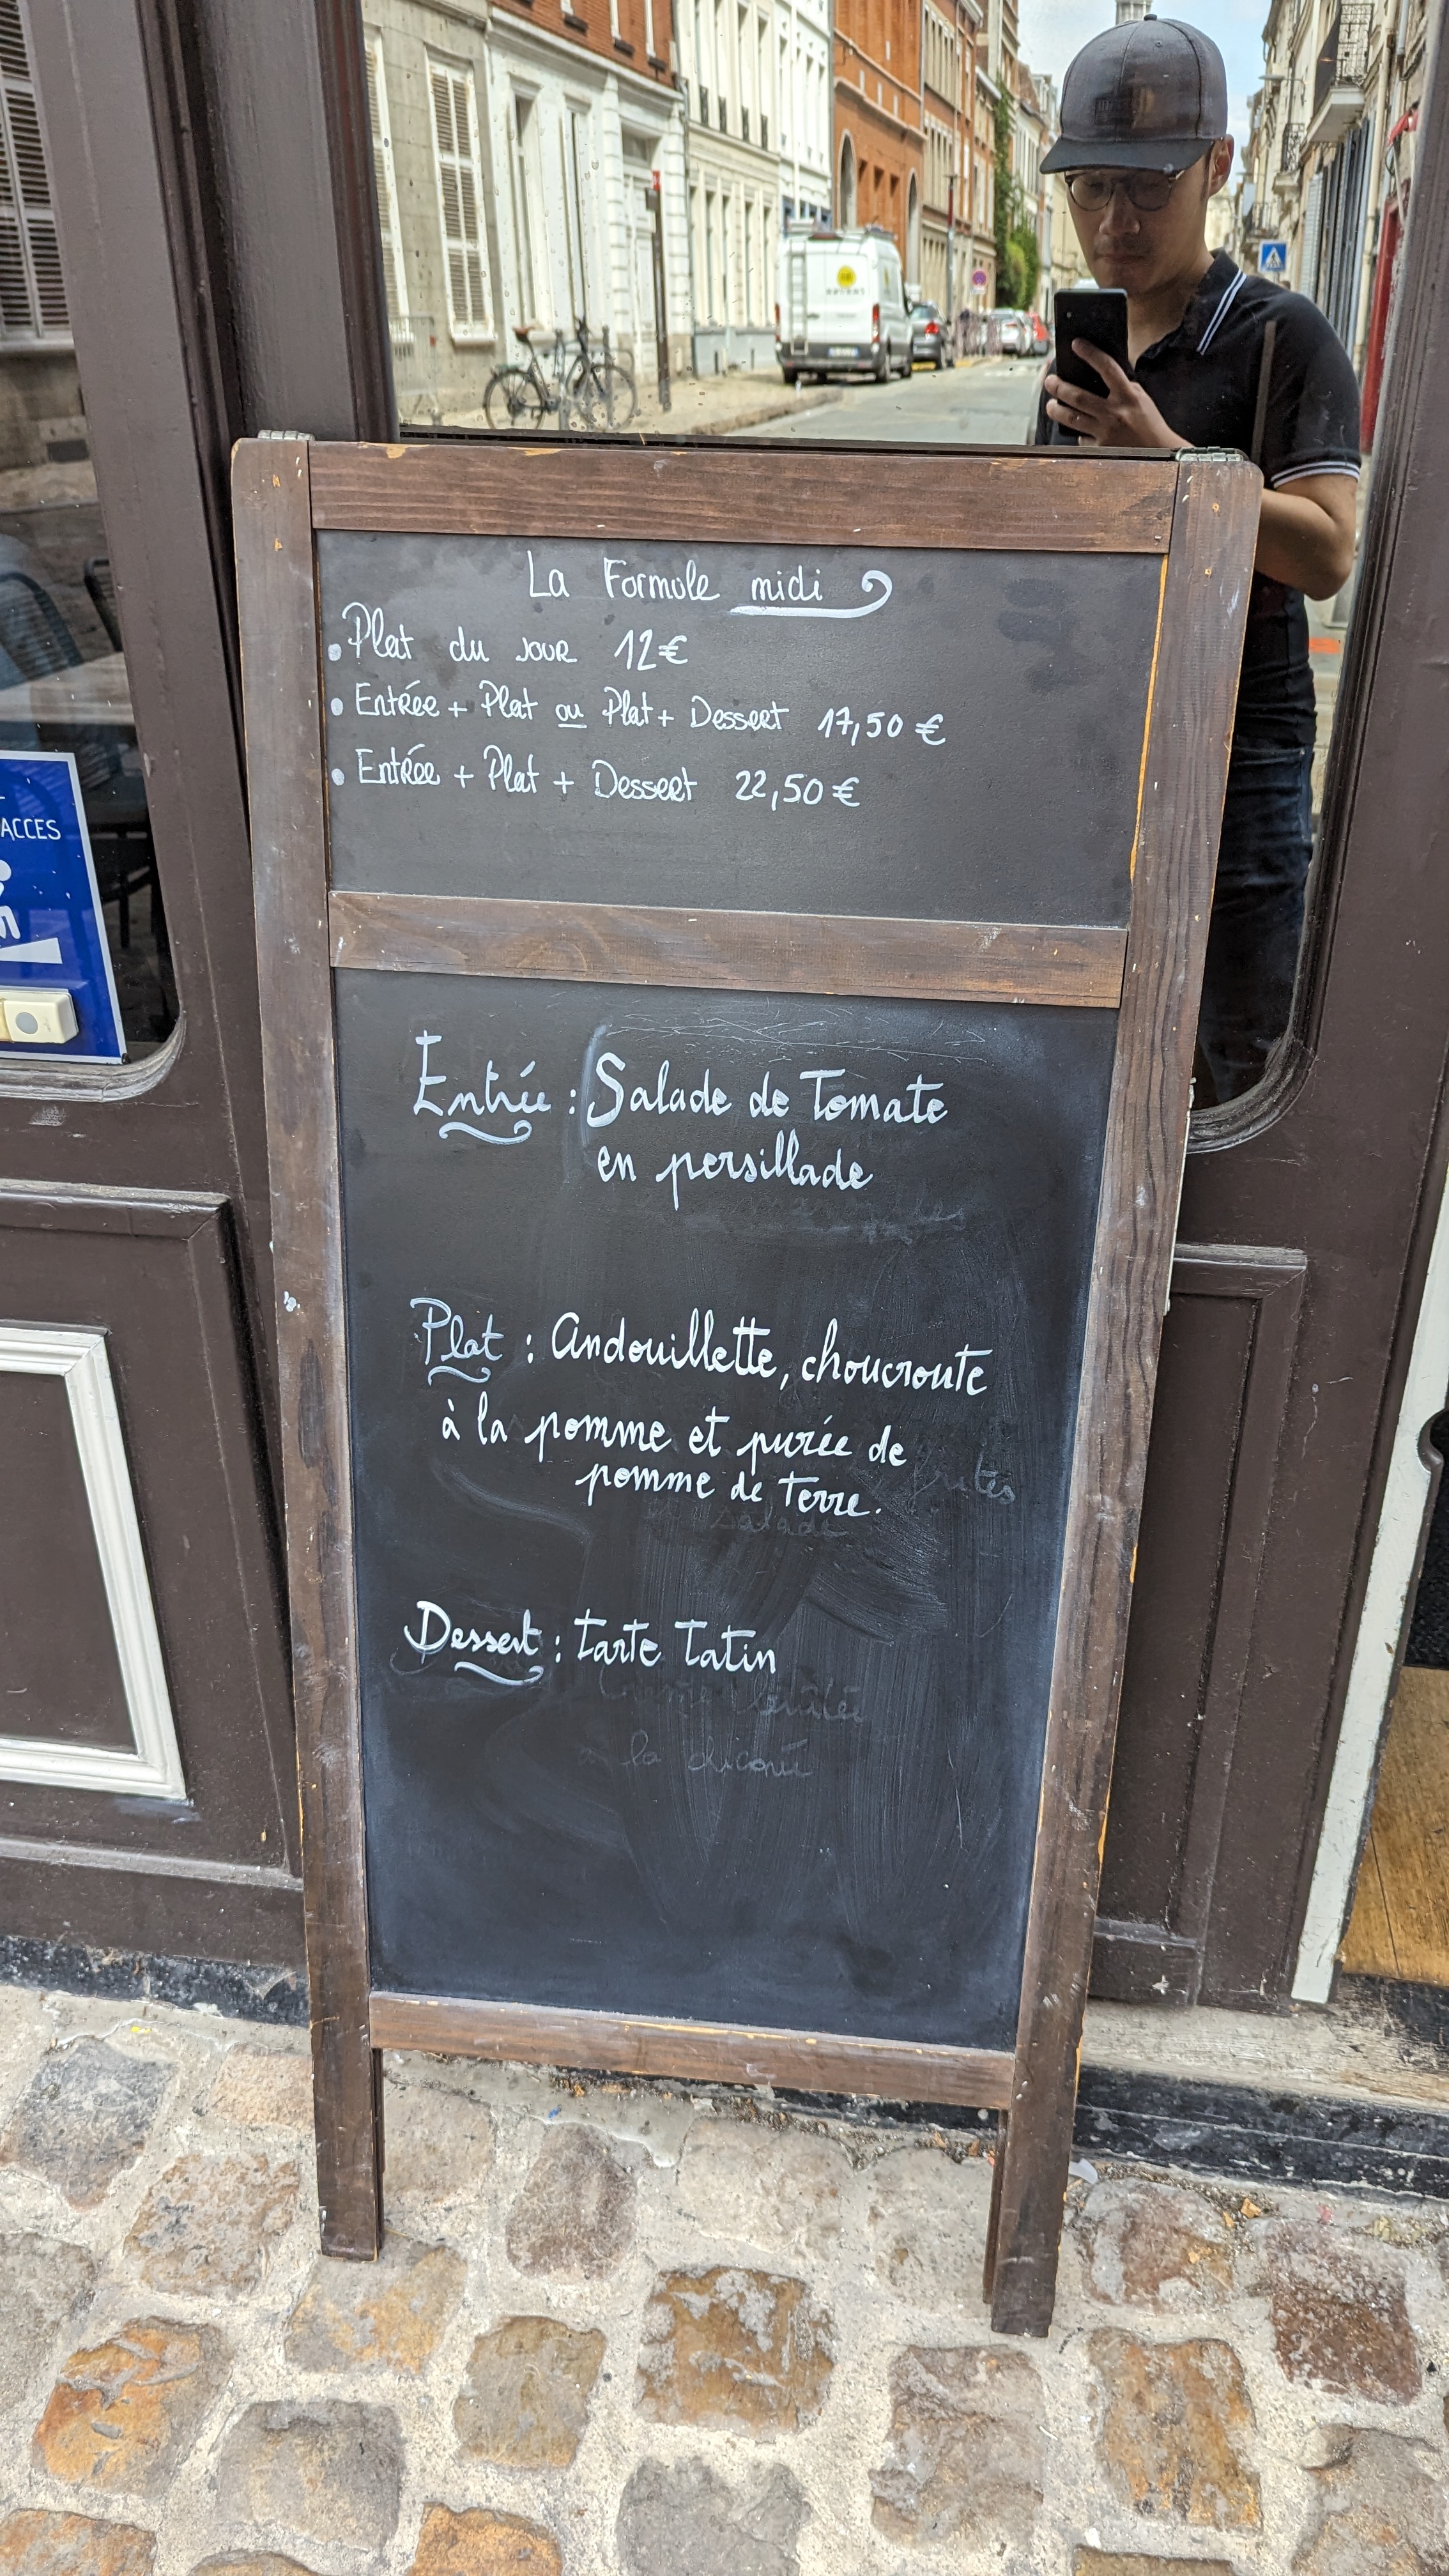 La Formule midi
• Plat du JOUR 12€
• Entrée + Plat ou Plat + Dessert 17,50 €
• Entrée + Plat + Dessert 22,50 €
ACCES
Entrée : Salade de Tomate
en persillade
Plat : Andouillette, choucroute
à la pomme et purée de
pomme de terre.
frites
salade
Dessert : tarte Tatin
brûlée
à la chicorée